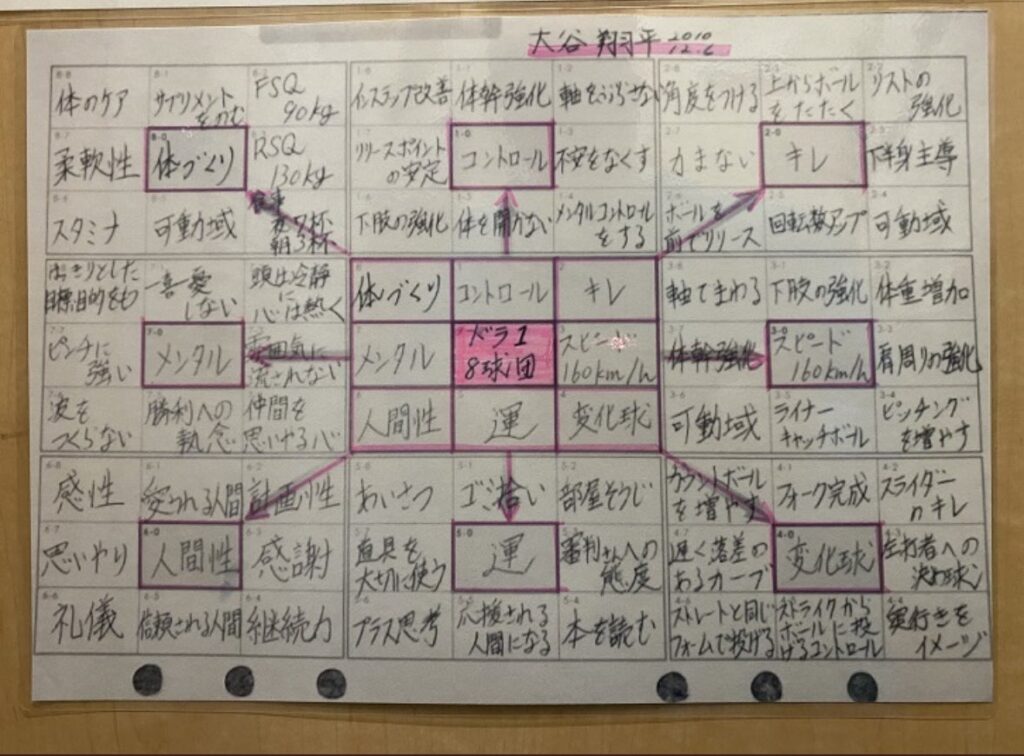 大谷翔平 2010 12.6
体のケア
サプリメント
をのむ
FSQ
90kg
インステップ改善
体幹強化
軸をぶらさない
角度をつける
上からボール
をたたく
リストの
強化
柔軟性
体づくり
RSQ
130kg
リリースポイント
の安定
コントロール
不安をなくす
力まない
キレ
下半身主導
スタミナ
可動域
食事
夜7杯
朝3杯
下肢の強化
体を開かない
メンタルコントロール
をする
ボールを
前でリリース
回転数アップ
可動域
はっきりとした
目標、目的をもつ
一喜一憂
しない
頭は冷静
に
心は熱く
体づくり
コントロール
キレ
軸でまわる
下肢の強化
体重増加
ピンチに
強い
メンタル
雰囲気に
流されない
メンタル
ドラ1
8球団
スピード
160km/h
体幹強化
スピード
160km/h
肩周りの強化
波を
つくらない
勝利への
執念
仲間を
思いやる心
人間性
運
変化球
可動域
ライナー
キャッチボール
ピッチング
を増やす
感性
愛される人間
計画性
あいさつ
ゴミ拾い
部屋そうじ
カウントボール
を増やす
フォーク完成
スライダー
のキレ
思いやり
人間性
感謝
道具を
大切に使う
運
審判さんへの
態度
遅く落差の
あるカーブ
変化球
左打者への
決め球
礼儀
信頼される人間
継続力
プラス思考
応援される
人間になる
本を読む
ストレートと同じ
フォームで投げる
ストライクから
ボールに投
げるコントロール
奥行きを
イメージ